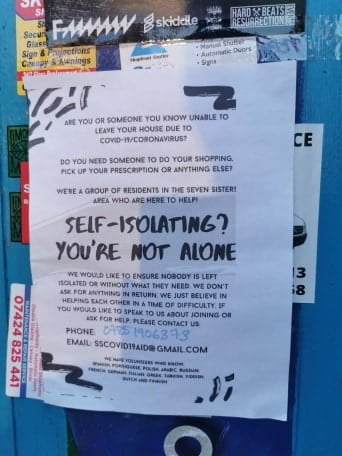 skiddle
HARD BEATS
RESURRECTION
Sign & Projections
Canopy & Awnings
Shopfront Shutter
- Manual Shutter
- Automatic Doors
- Signs
ARE YOU OR SOMEONE YOU KNOW UNABLE TO
LEAVE YOUR HOUSE DUE TO
COVID-19/CORONAVIRUS?
DO YOU NEED SOMEONE TO DO YOUR SHOPPING,
PICK UP YOUR PRESCRIPTION OR ANYTHING ELSE?
WE'RE A GROUP OF RESIDENTS IN THE SEVEN SISTERS
AREA WHO ARE HERE TO HELP!
SELF-ISOLATING?
YOU'RE NOT ALONE
WE WOULD LIKE TO ENSURE NOBODY IS LEFT
ISOLATED OR WITHOUT WHAT THEY NEED. WE DON'T
ASK FOR ANYTHING IN RETURN. WE JUST BELIEVE IN
HELPING EACH OTHER IN A TIME OF DIFFICULTY. IF
YOU WOULD LIKE TO SPEAK TO US ABOUT JOINING OR
ASK FOR HELP, PLEASE CONTACT US:
PHONE:
EMAIL: SSCOVID19AID@GMAIL.COM
WE HAVE VOLUNTEERS WHO KNOW:
SPANISH, PORTUGUESE, POLISH, ARABIC, RUSSIAN,
FRENCH, GERMAN, ITALIAN, GREEK, TURKISH, YIDDISH,
DUTCH AND FINNISH
07424 825 441
CE
13
58